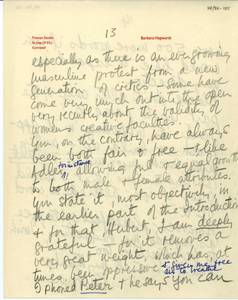 Trewyn Studio
St Ives
Cornwall
Barbara Hepworth
13
especially as there is an ever growing
masculine protest from a new
generation of critics – Some have
come very much out into the open
very recently about the validity of
women's creative faculties.
You, on the contrary, have always
been both fair & free –
allowing full & equal growth
to both male & female attributes.
You state it, most objectively, in
the earlier part of the introduction
& for that, Herbert, I am deeply
grateful – for it removes a
very great weight which has, at
times, been oppressive
& gives me free
air to breathe
I phoned Peter & he says you can